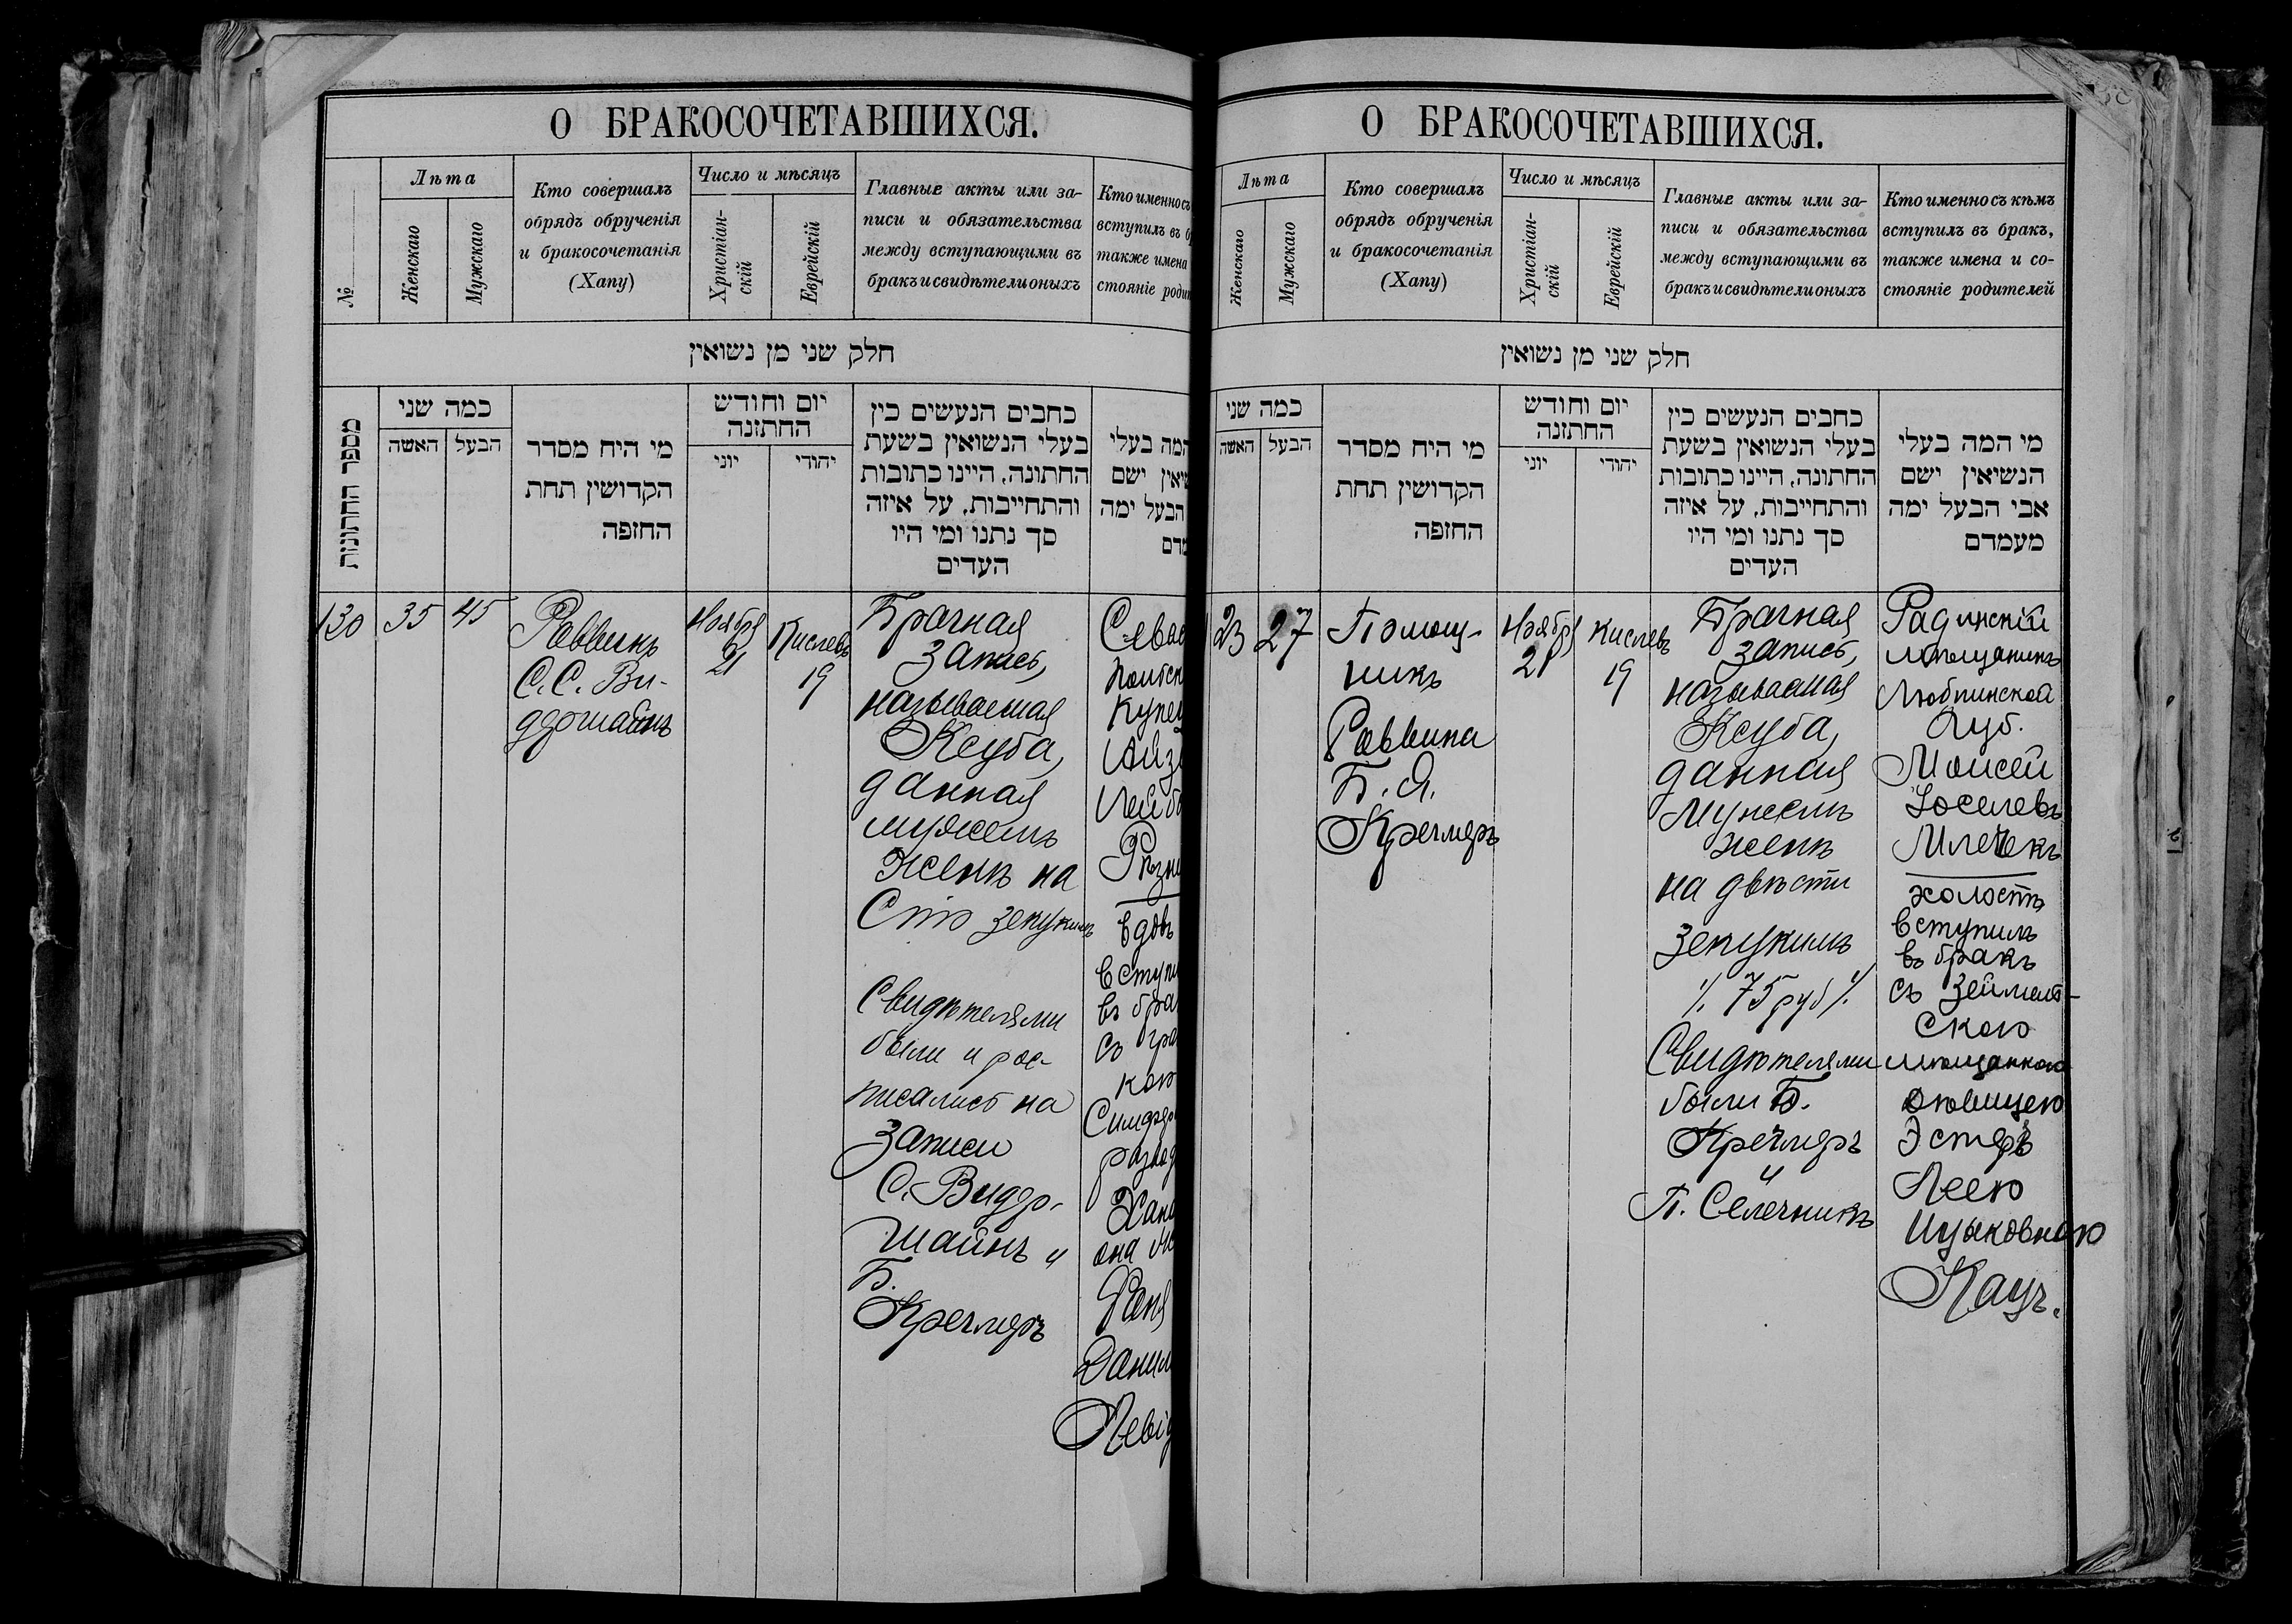 О БРАКОСОЧЕТАВШИХСЯ.
№
Лѣта
Женскаго
Мужскаго
Кто совершалъ
обрядъ обрученія
и бракосочетанія
(Хапу)
Число и мѣсяцъ
Христіан-
скій
Еврейскій
Главные акты или за-
писи и обязательства
между вступающими въ
бракъ и свидѣтели оныхъ
Кто именно съ
вступилъ въ б
также имена
стояніе роди
חלק שני מן נשואין
מספר החתונות
כמה שני
האשה
הבעל
מי היח מסדר
הקדושין תחת
החזפה
יום וחודש
החתזנה
יוני
יהודי
כחבים הנעשים כין
בעלי הנשואין בשעת
החתונה, היינו כתובות
והתחייבות, על איזה
סך נתנו ומי היו
העדים
המה בעלי
שיאין ישם
הבעל ימה
מדם
130
35
45
Раввинъ
С. С. Ви-
ддршайнъ
Ноябрь
21
Кислевъ
19
Брачная
запись,
называемая
Ксуба,
данная
мужемъ
женѣ на
Сто зекукимъ
Свидѣтелями
были и рос-
писались на
записи
С. Виддр-
шайнъ и
Б.
Кречмеръ
Сева
польск
Купец
Айз
Лейб
Рѣзни
вдов
вступи
въ бра
съ гра
кою
Симфер
развод
Хана
она же
Фаня
Данил
Леві
О БРАКОСОЧЕТАВШИХСЯ.
Лѣта
Женскаго
Мужскаго
Кто совершалъ
обрядъ обрученія
и бракосочетанія
(Хапу)
Число и мѣсяцъ
Христіан-
скій
Еврейскій
Главные акты или за-
писи и обязательства
между вступающими въ
бракъ и свидѣтели оныхъ
Кто именно съ кѣмъ
вступилъ въ бракъ,
также имена и со-
стояніе родителей
חלק שני מן נשואין
כמה שני
האשה
הבעל
מי היח מסדר
הקדושין תחת
החזפה
יום וחודש
החתזנה
יוני
יהודי
כחבים הנעשים כין
בעלי הנשואין בשעת
החתונה, היינו כתובות
והתחייבות, על איזה
סך נתנו ומי היו
העדים
מי המה בעלי
הנשיאין ישם
אבי הבעל ימה
מעמדם
23
27
Помощ-
никъ
Раввина
Б. Я.
Кречмеръ
Ноябрь
21
Кислевъ
19
Брачная
запись,
называемая
Ксуба,
данная
мужемъ
женѣ
на двѣсти
зекукимъ
% 75 руб %
Свидѣтелями
были Б.
Кречмеръ
и
П. Селечникъ
Радинскій
мѣщанинъ
Люблинской
Губ.
Моисей
Іоселевъ
Млечекъ
холостъ
вступилъ
въ бракъ
съ Зеймель-
скою
мѣщанкою
дѣвицею
Эстеръ
Леею
Ицковною
Кацъ.